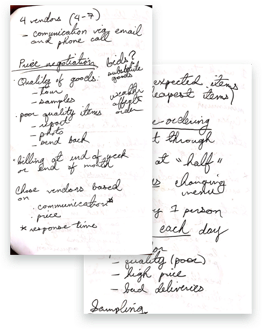 4 vendors (4-7)
- comunication very email
and phone call
Price negotiation bids?
Quality of goods: substitute
goods
- tour
- samples
weather
affects
order
• poor quality items
- report
- photo
- send back
• billing at end of week
or end of month
Chose vendors based
on
. communication*
. price
* response time
expected items
eapest items)
e-ordering
t through
at "half"
s changing
menu
y 1 person
each day
or
- quality (poor)
- high price
- bad deliveries
Sampling